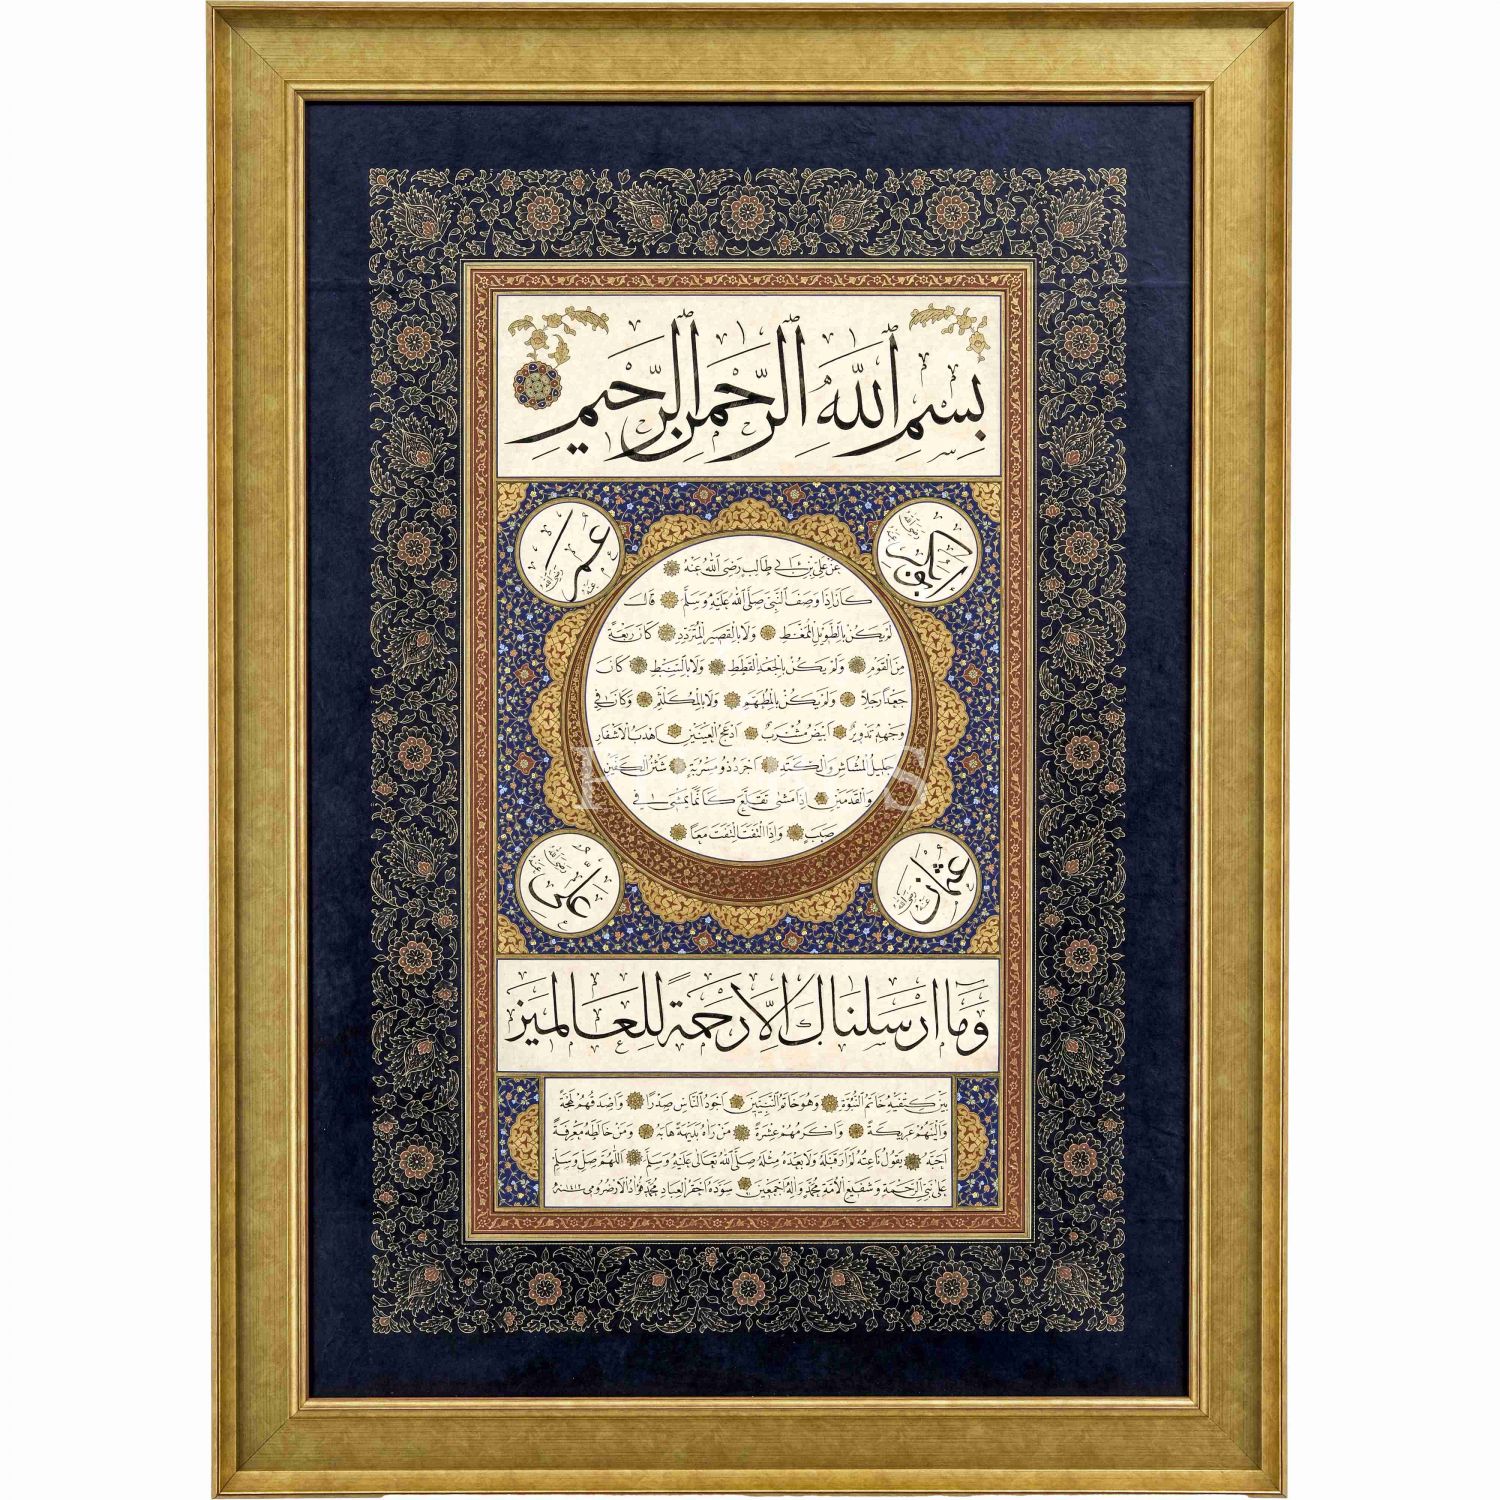 بِسْمِ اللهِ الرَّحْمٰنِ الرَّحِيمِ
ابوبكر رضي الله عنه
عمر رضي الله عنه
عَنْ عَلِيِّ بْنِ اَبِي طَالِبٍ رَضِيَ اللهُ عَنْهُ
كَانَ اِذَا وَصَفَ النَّبِيَّ صَلَّى اللهُ عَلَيْهِ وَسَلَّمَ قَالَ
لَمْ يَكُنْ بِالطَّوِيلِ الْمُمَّغِطِ وَلَا بِالْقَصِيرِ الْمُتَرَدِّدِ كَانَ رَبْعَةً
مِنَ الْقَوْمِ وَلَمْ يَكُنْ بِالْجَعْدِ الْقَطَطِ وَلَا بِالسَّبِطِ كَانَ
جَعْدًا رَجِلًا وَلَمْ يَكُنْ بِالْمُطَهَّمِ وَلَا بِالْمُكَلْثَمِ وَكَانَ فِي
وَجْهِهِ تَدْوِيرٌ اَبْيَضُ مُشْرَبٌ اَدْعَجُ الْعَيْنَيْنِ اَهْدَبُ الْاَشْفَارِ
جَلِيلُ الْمُشَاشِ وَالْكَتَدِ اَجْرَدُ ذُو مَسْرُبَةٍ شَثْنُ الْكَفَّيْنِ
وَالْقَدَمَيْنِ اِذَا مَشٰى تَقَلَّعَ كَاَنَّمَا يَمْشِي فِي
صَبَبٍ وَاِذَا الْتَفَتَ الْتَفَتَ مَعًا
عثمان رضي الله عنه
علي رضي الله عنه
وَمَا اَرْسَلْنَاكَ اِلَّا رَحْمَةً لِلْعَالَمِينَ
بَيْنَ كَتِفَيْهِ خَاتَمُ النُّبُوَّةِ وَهُوَ خَاتَمُ النَّبِيِّينَ اَجْوَدُ النَّاسِ صَدْرًا وَاَصْدَقُهُمْ لَهْجَةً
وَاَلْيَنُهُمْ عَرِيكَةً وَاَكْرَمُهُمْ عِشْرَةً مَنْ رَاٰهُ بَدِيهَةً هَابَهُ وَمَنْ خَالَطَهُ مَعْرِفَةً
اَحَبَّهُ يَقُولُ نَاعِتُهُ لَمْ اَرَ قَبْلَهُ وَلَا بَعْدَهُ مِثْلَهُ صَلَّى اللهُ تَعَالٰى عَلَيْهِ وَسَلَّمَ اَللّٰهُمَّ صَلِّ وَسَلِّمْ
عَلٰى نَبِيِّ الرَّحْمَةِ وَشَفِيعِ الْاُمَّةِ مُحَمَّدٍ وَاٰلِهِ اَجْمَعِينَ سَوَّدَهُ اَحْقَرُ الْعِبَادِ مُحَمَّد فُؤَاد الْاَرْضرُومِي